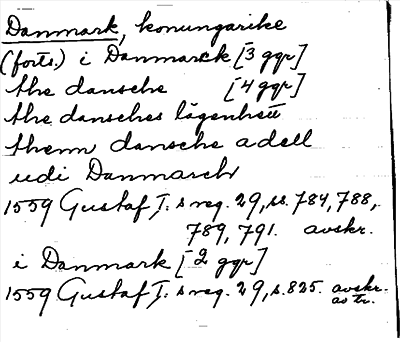 Danmark, konungarike
(forts.) i Danmarck [3 ggr]
the dansche [4 ggr]
the dansches lägenhett
thenn dansche adell
udi Danmarch
1559 Gustaf I:s reg. 29, ss. 784, 788,
789, 791. avskr.
i Danmark [2 ggr]
1559 Gustaf I:s reg. 29, s. 825. avskr.
av tr.